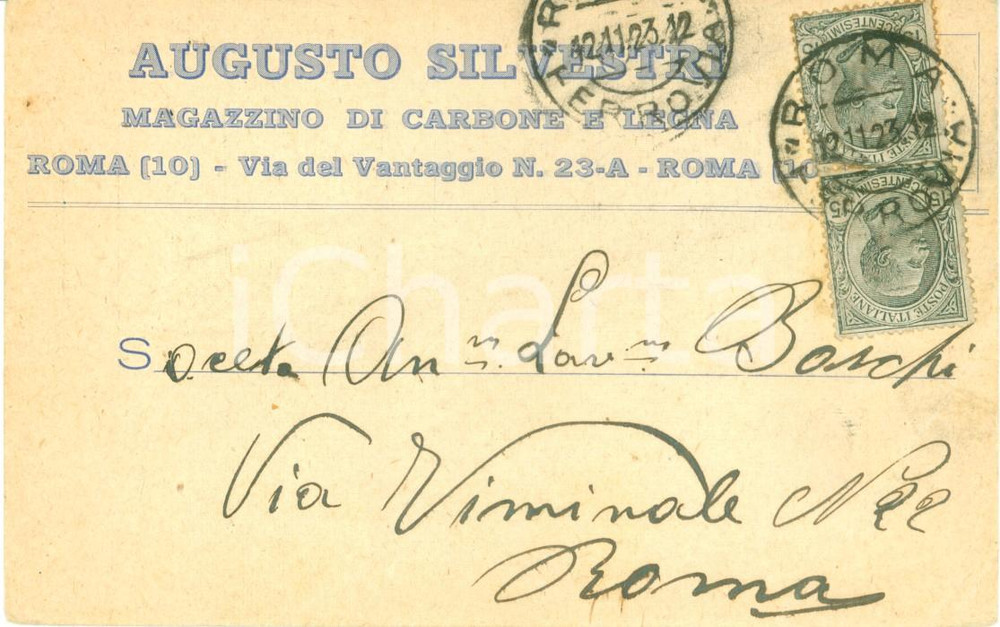 AUGUSTO SILVESTRI
MAGAZZINO DI CARBONE E LEGNA
ROMA (10) - Via del Vantaggio N. 23-A - ROMA (10
ROMA
12.11.23.12
FERROVIA
12.11.23.12
CENTESIMI 15
POSTE ITALIANE
CENTESIMI 15
POSTE ITALIANE
iCharta
Società An.m Lav.m Boschi
Via Viminale N 22
Roma